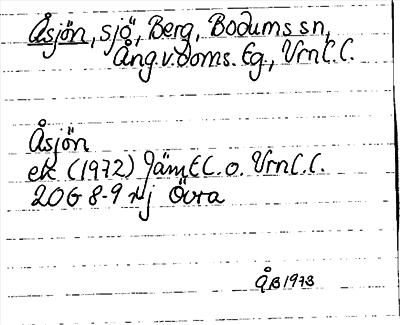 Åsjön, sjö, Berg, Bodums sn,
Ång.v.doms. Eg.,
Åsjön
ek (1972) o.
20G 8-9 Övra
ÅB 1973